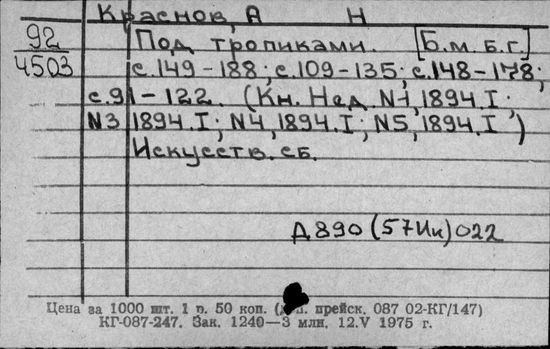 Краснов, А Н
92
4503
Под тропиками. [Б.м. б.г.]
с. 149-188; с. 109-135; с. 148-178;
с. 91-122. (Кн. Нед. №1, 1894. I;
№3 1894. I; №4, 1894. I; №5, 1894. I)
Искусств. сб.
Д890(57Ин)022
Цена за 1000 шт. 1 р. 50 коп. ( прейск. 087 02-КГ/147)
КГ-087-247. Зак. 1240—3 млн. 12.V 1975 г.